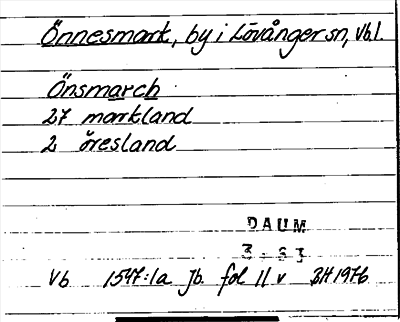 Önnesmark, by i Lövånger sn, Vb.l.
Önsmarch
27 markland
2 öresland
DAUM
3 · 63
Vb 1547:1a Jb. fol 11 v BH 1976